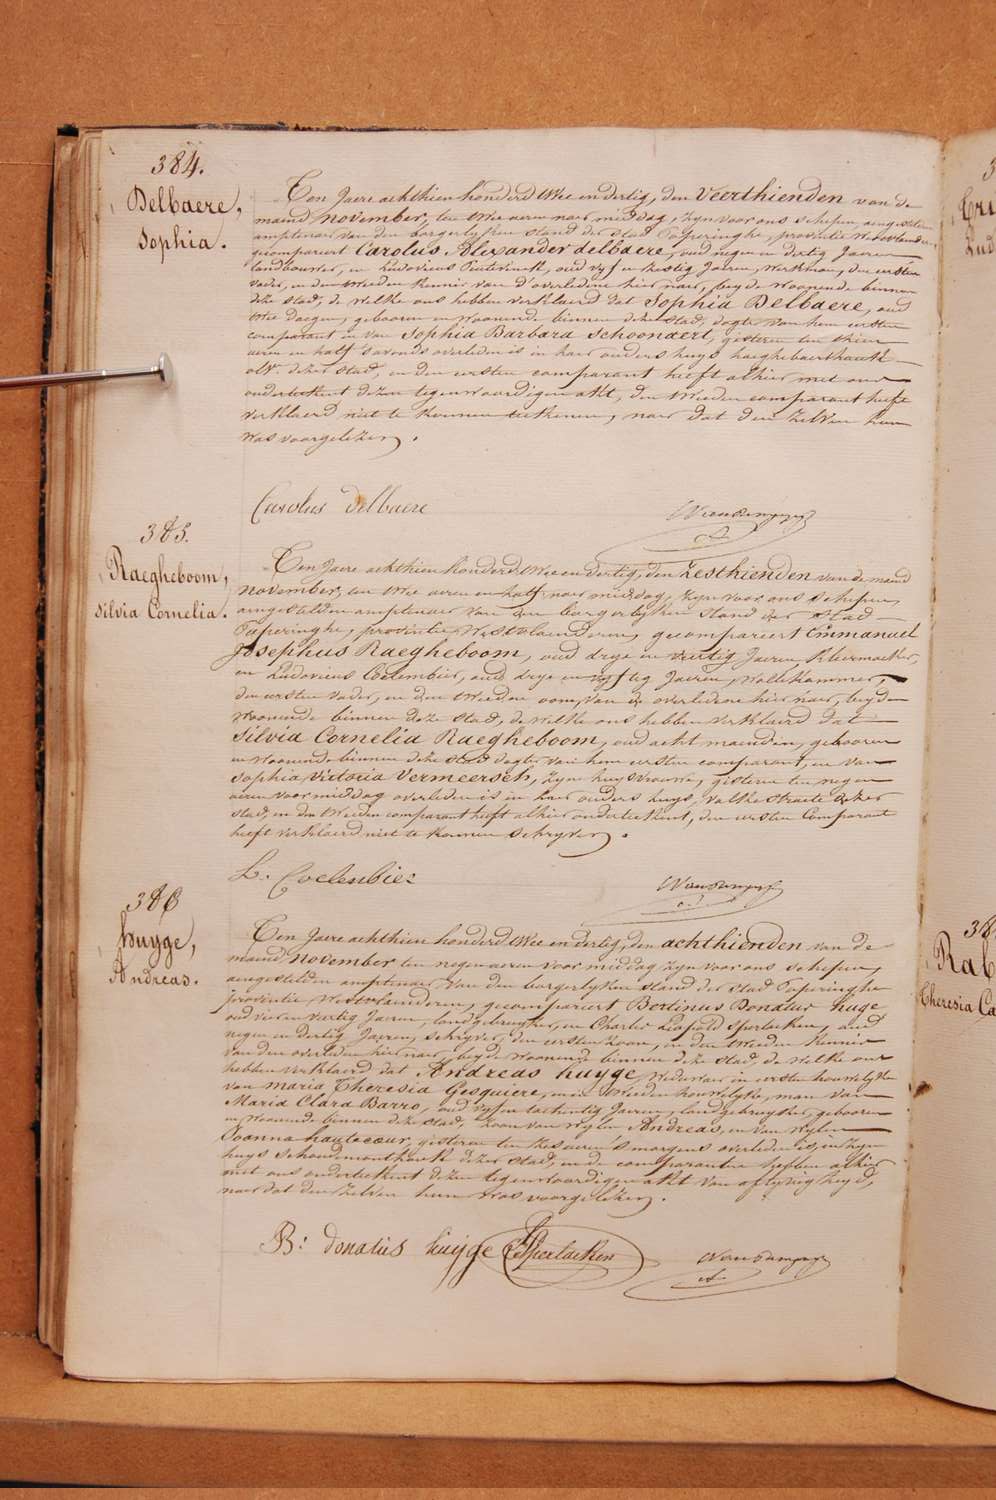 384.
Delbaere,
Sophia.
Ten Jaere achthien honderd twee en dertig, den Veerthienden van de
maend november, ten twee uren naer middag, zyn voor ons schepen, aengestelden
amptenaer van den borgerlyken stand der stad Poperinghe, provintie Westvlaenderen,
gecompareert Carolus Alexander delbaere, oud negen en dertig Jaeren
landbouwer, en Ludovicus oud vyf en zestig Jaeren, werkman, den eersten
vader, en den tweeden kennis van d'overledene hier naer, beyde woonende binnen
deze stad, de welke ons hebben verklaerd dat Sophia Delbaere, oud
twee daegen, gebooren en woonende binnen deze stad, dogter van hem eersten
comparant en van Sophia Barbara Schoonaert, gisteren ten thien
uren en half s'avonds overleden is in haer ouders huys haeghebaerthoeck
deser stad, en den eersten comparant heeft alhier met ons
onderteekent dezen tegenwoordigen akt, den tweeden comparant heeft
verklaerd niet te konnen teekenen, naer dat den zelven hun
was voorgelezen.
Carolus delbaere
385.
Raegheboom,
Silvia Cornelia.
Ten Jaere achthien honderd twee en dertig, den Zesthienden van de maend
november, ten twee uren en half naer middag, zyn voor ons schepen,
aengestelden amptenaer van den borgerlyken stand der stad
Poperinghe, provintie Westvlaenderen, gecompareert Emmanuel
Josephus Raegheboom, oud drye en veertig Jaeren kleermaeker,
en Ludovicus Coelembier, oud drye en vyftig Jaeren, wollekammer,
den eersten vader, en den tweeden oom, van de overledene hier naer, beyde
woonende binnen deze stad, de welke ons hebben verklaerd dat
Silvia Cornelia Raegheboom, oud acht maenden, gebooren
en woonende binnen deze stad dogter van hem eersten comparant, en van
Sophia Victoria Vermeersch, zyne huysvrouwe, gisteren ten negen
uren voor middag overleden is in haer ouders huys, valke straete dezer
stad, en den tweeden comparant heeft alhier onderteekent, den eersten Comparant
heeft verklaerd niet te konnen schryven.
L: Coelenbier
386
huyge,
Andreas.
Ten Jaere achthien honderd twee en dertig, den achthienden van de
maend november ten negen uren voor middag zyn voor ons schepen,
aengestelden amptenaer van den borgerlyken stand der stad Poperinghe
provintie Westvlaenderen, gecompareert Bertinus Donatus huge
oud vier en veertig Jaeren, landgebruyker, en Charles Leopold Sperlaeken, oud
negen en dertig Jaeren, schryver, den eersten zoon, en den tweeden kennis
van den overleden hier naer, beyde woonende binnen deze stad, de welke ons
hebben verklaerd dat Andreas huyge, weduwaer in eersten houwelyke
van Maria Theresia Gesquiere, en in tweeden houwelyke, man van
Maria Clara Barro, oud vyf en tachentig Jaeren, landgebruyker, gebooren
en woonende binnen deze stad, zoon van wylen Andreas, en van wylen
Joanna hautecoeur, gisteren ten zes uren 's morgens overleden is, in zyn
huys Schoudemonthoek dezer stad, en de comparanten hebben alhier
met ons onderteekent dezen tegenwoordigen akt van aflyvigheyd,
naer dat den zelven hun was voorgelezen.
B: donatus huyge Sperlaeken